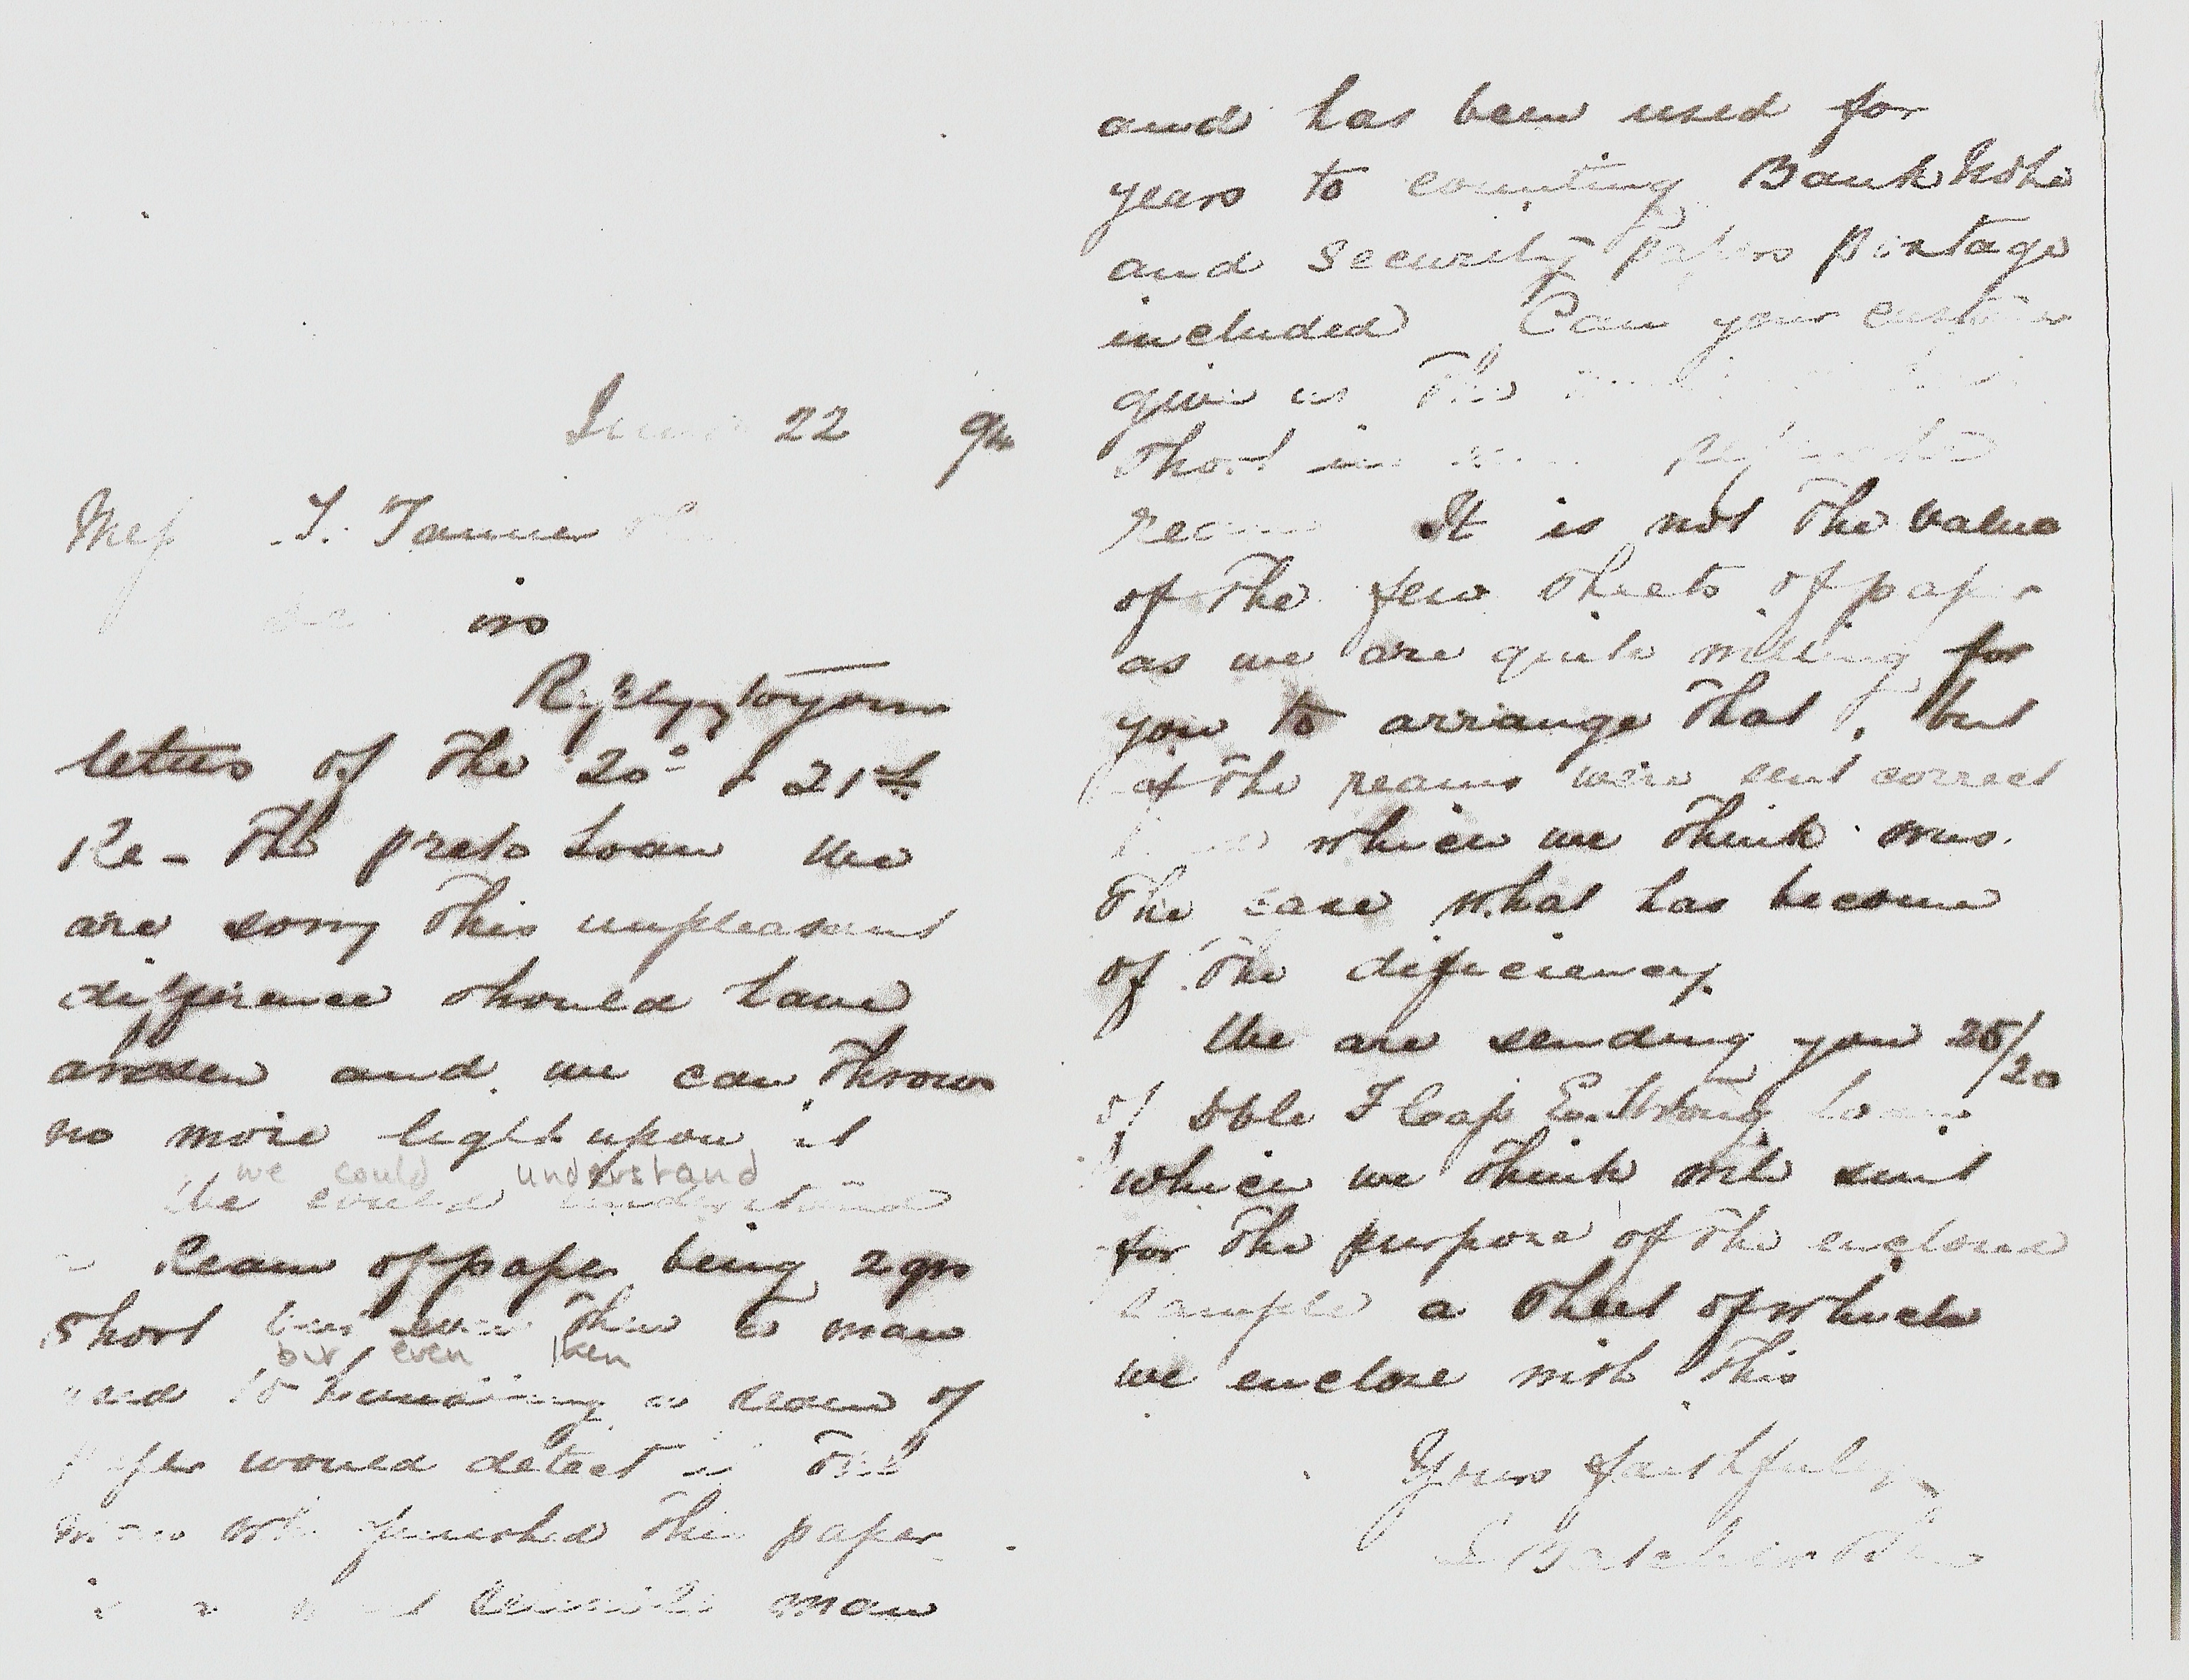 June 22 94
Mess T. Tanner
Reply to your
letters of the 20º & 21st
Re - The Loan We
are sorry this unpleasant
difference should have
arisen and we can throw
no more light upon it
we could understand
We could understand
a Ream of paper being 2 qrs
short but even then a man
but even then
used to a ream of
paper would detect it The
man who finished this paper
is a most man
and has been used for
years to counting Bank Note
and security papers postage
included Can your customer
give us the
short in
ream It is not the value
of the few sheets of paper
as we are quite willing for
you to arrange that, but
if the reams were sent correct
which we think was
the case what has become
of the deficiency.
We are sending you 25/20
of Dble F Cap E. Strong Loan
which we think will suit
for the purpose of the enclosed
sample a sheet of which
we enclose with this
Yours faithfully